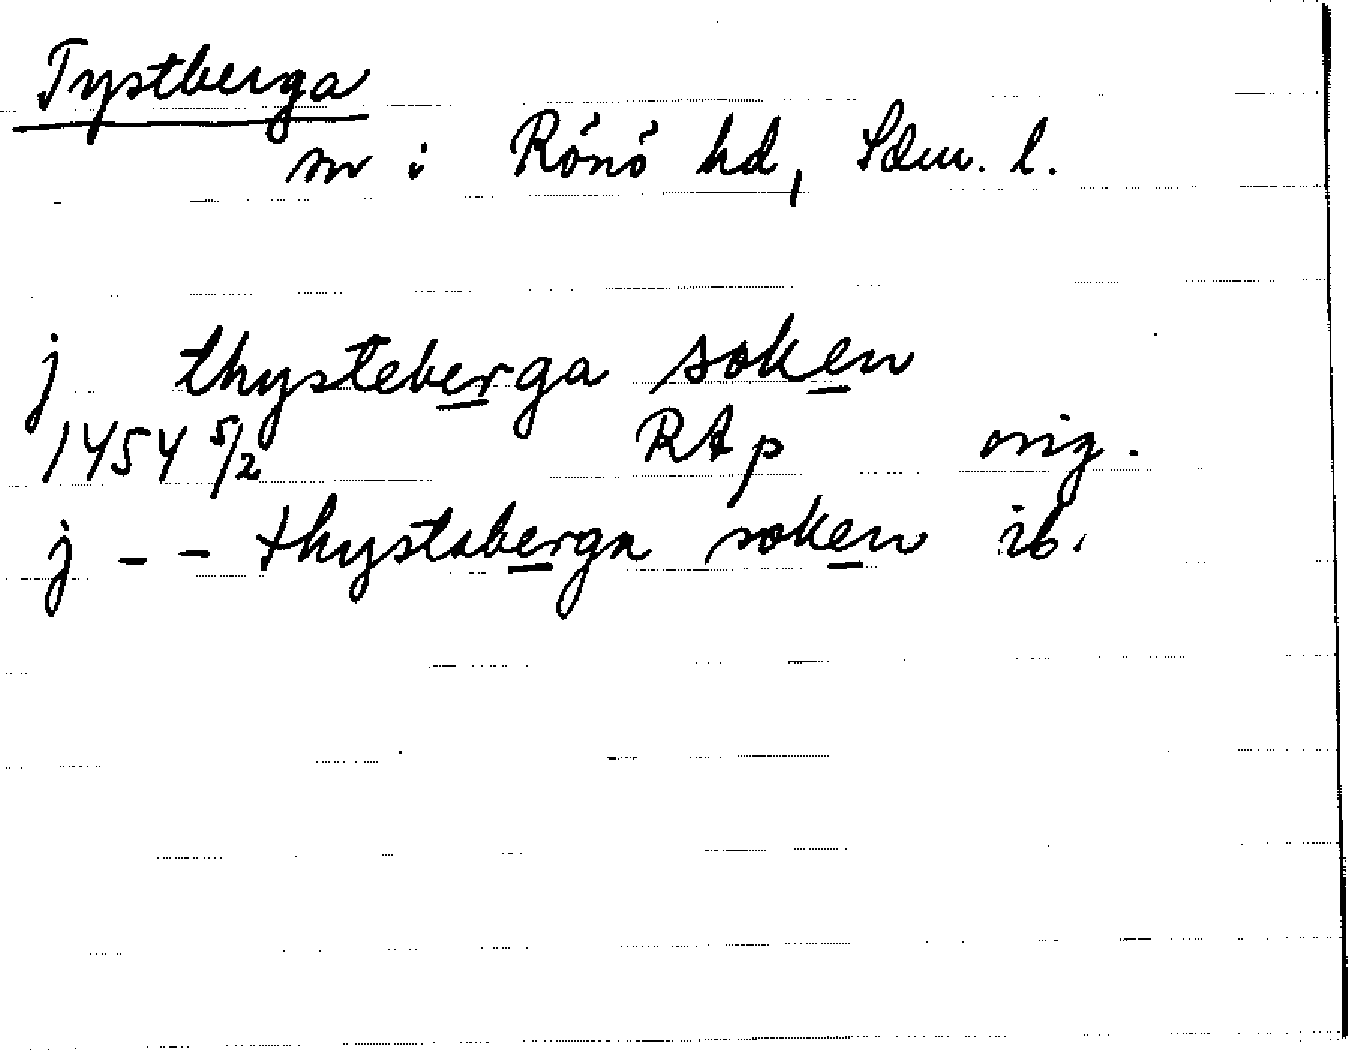 Tystberga
sn i Rönö hd, Sdm. l.
j thysteberga soken
1454 5/2 RAp orig.
j - - thystaberga soken ib.